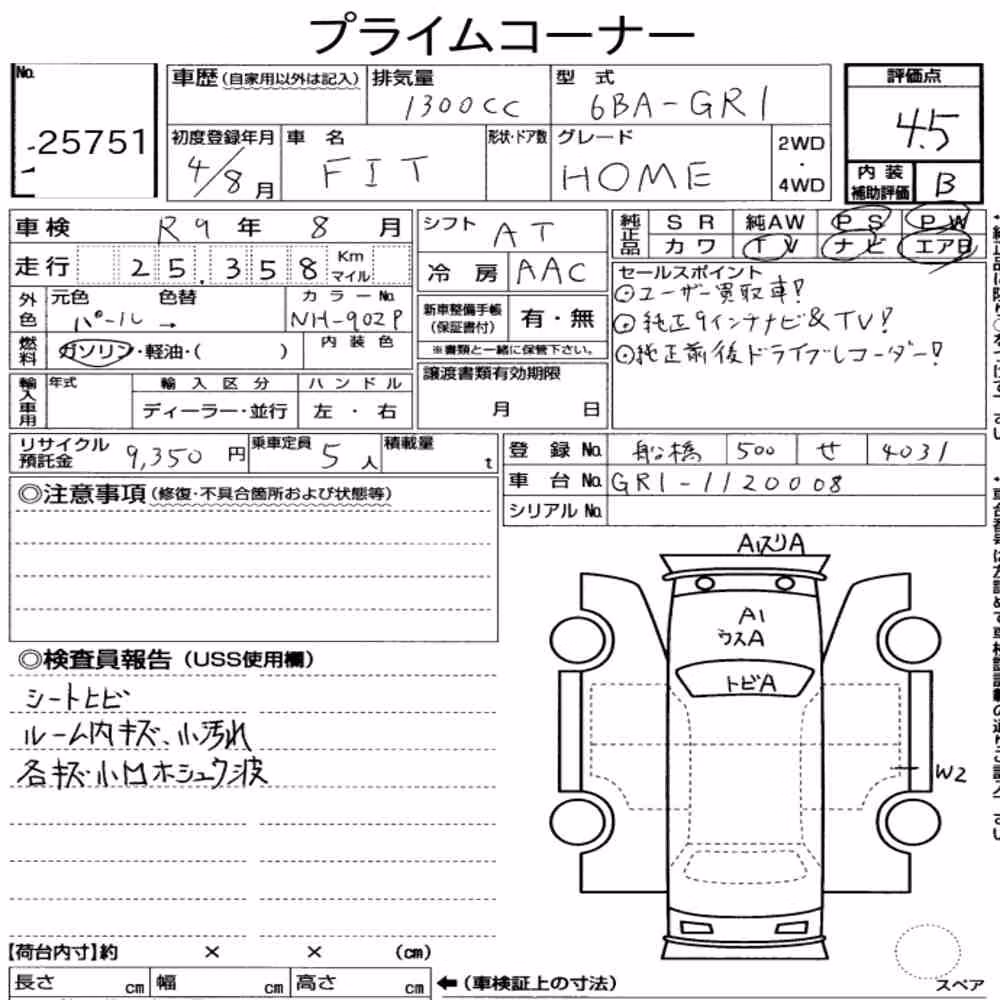 プライムコーナー
No. 25751
車歴(自家用以外は記入) 排気量 1300cc 型式 6BA-GR1
初度登録年月 4/8月 車名 FIT 形状・ドア数 グレード HOME 2WD・4WD
評価点 4.5
内装補助評価 B
車検 R9年 8月
走行 25,358 Km マイル
外色 元色 パール 色替 → カラーNo. NH-902P
燃料 ガソリン・軽油・( ) 内装色
輸入車用 年式 輸入区分 ディーラー・並行 ハンドル 左・右
シフト AT
冷房 AAC
新車整備手帳(保証書付) 有・無
※書類と一緒に保管下さい。
譲渡書類有効期限
月 日
純正品 SR 純AW PS PW
カワ TV ナビ エアB
セールスポイント
⊙ユーザー買取車!
⊙純正9インチナビ&TV!
⊙純正前後ドライブレコーダー!
リサイクル預託金 9,350円 乗車定員 5人 積載量 t
登録No. 船橋 500 せ 4031
車台No. GR1-1120008
シリアルNo.
◎注意事項(修復・不具合箇所および状態等)
◎検査員報告(USS使用欄)
シートヒビ
ルーム内キズ、小汚れ
各キズ小凹ホシュウ波
A1スリA
A1
ウスA
トビA
W2
【荷台内寸】約 × × (cm)
長さ cm 幅 cm 高さ cm ←(車検証上の寸法)
スペア